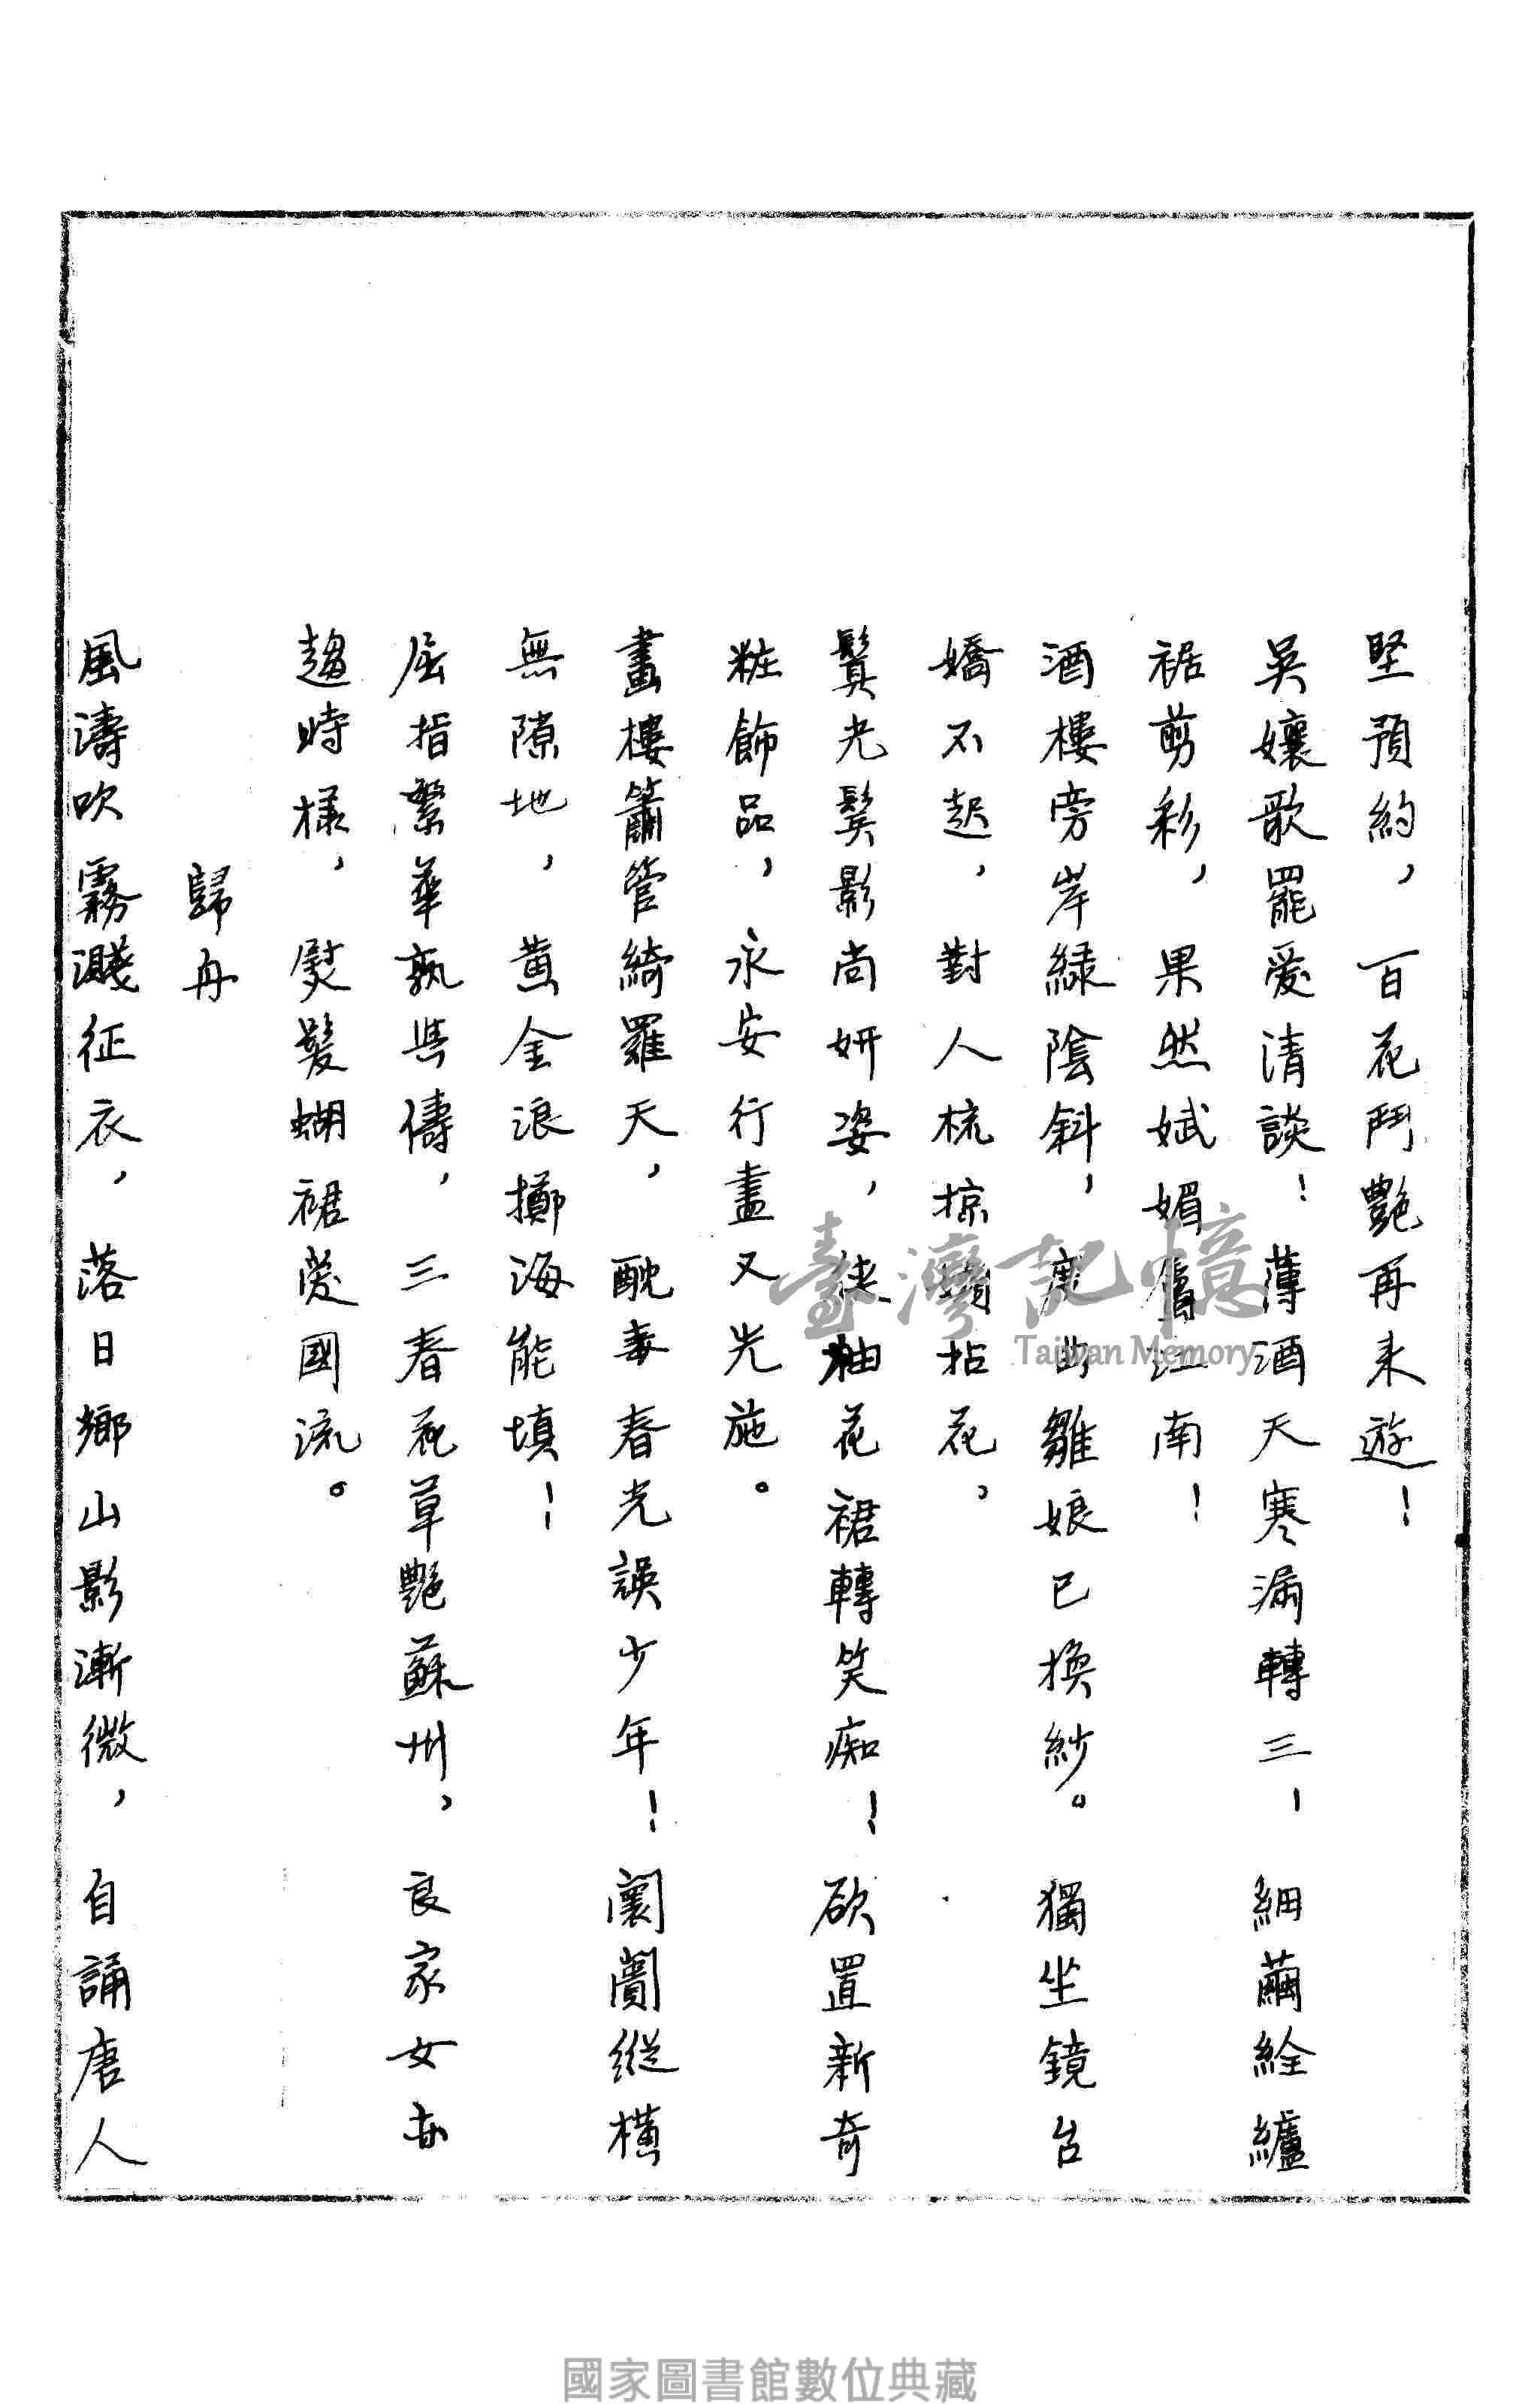 堅預約，百花鬥艷再來遊！
吳孃歌罷愛清談！薄酒天寒漏轉三！細繭絟纑
裾剪彩，果然娬媚舊江南！
酒樓旁岸綠陰斜，曲雛娘已換紗。獨坐鏡台
嬌不起，對人梳掠拈花，
鬒光鬓影尚妍姿，袖花裙轉笑痴！欲置新奇
粧飾品，永安行盡又光施。
畫樓簫管綺羅天，酖毒春光誤少年！闤闠縱橫
無隙地，黃金浪擲海能填！
屈指繁華孰與儔，三春花草艷蘇州，良家女亦
趨時樣，熨髮蝴裙愛國流。
歸舟
風濤吹霧濺征衣，落日鄉山影漸微，自誦唐人
臺灣記憶
Taiwan Memory
國家圖書館數位典藏